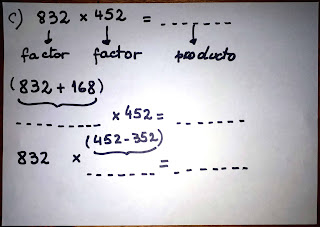 c) 832 × 452 = _ _ _ _ _ _
factor factor producto
(832 + 168)
_ _ _ _ _ _ _ × 452 = _ _ _ _ _ _
(452 - 352)
832 × _ _ _ _ _ _ = _ _ _ _ _ _